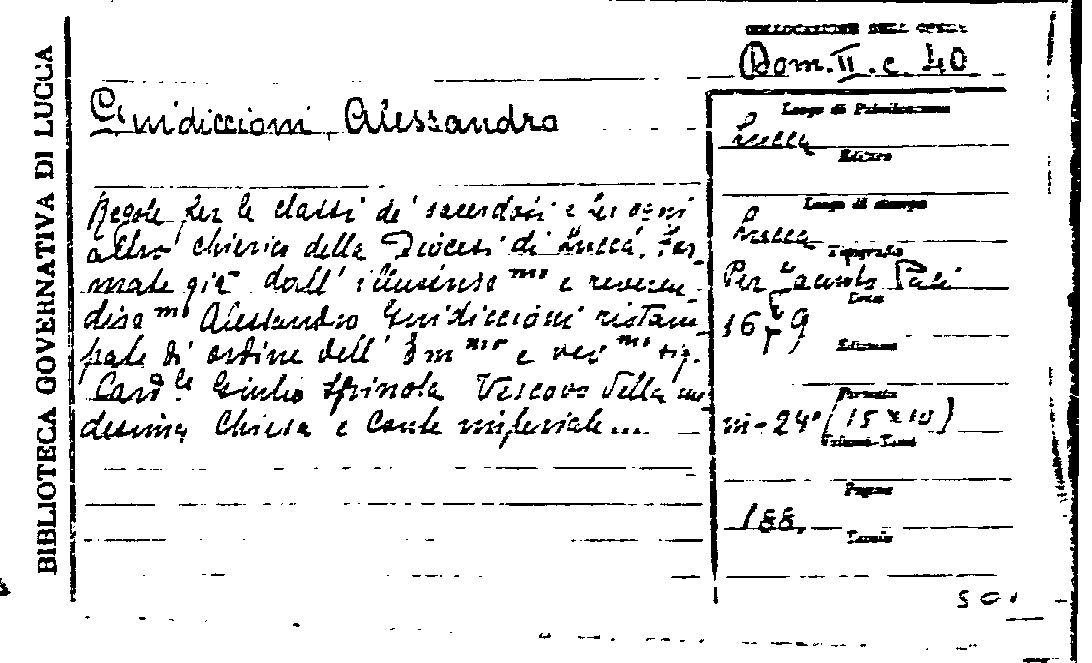 BIBLIOTECA GOVERNATIVA DI LUCCA
COLLOCAZIONE DELL'OPERA
Dom. II. c. 40
Guidiccioni Alessandro
Regole per le classi de' sacerdoti e per ogni
altro chierico della Diocesi di Lucca. For-
mate già dall' illustrisso mo e reveren-
diso mo Alessandro Guidiccioni ristam-
pate di ordine dell' Em mo e rev mo sig.
Card. le Giulio Spinola Vescovo della me-
desima Chiesa e Conte imperiale...
Luogo di Pubblicazione
Lucca
Editore
Luogo di stampa
Lucca
Tipografo
Per Iacinto Paci
Anno
16 9
Edizione
Formato
in-24° (15 x 10)
Volume-Tomi
Pagine
188.
Tavole